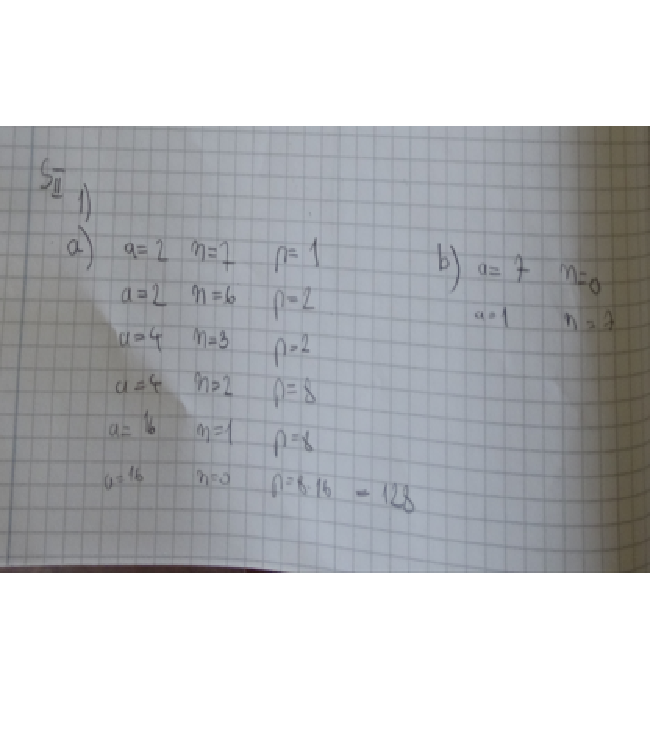 S II
1)
a) a=2 n=7 p=1
a=2 n=6 p=2
a=4 n=3 p=2
a=4 n=2 p=8
a=16 n=1 p=8
a=16 n=0 p=8·16 = 128
b) a=7 n=0
a=1 n=7